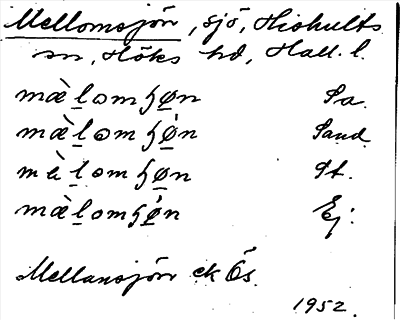 Mellomsjön, sjö, Hishults
sn, Höks hd, Hall. l.
mæ̀l̲omʃø̲n Sa.
mæ̀l̲omʃǿ̲n Sand
mèl̲omʃø̲n St.
mæ̀l̲omʃǿ̲n Ej.
Mellansjön ek Ös.
1952.